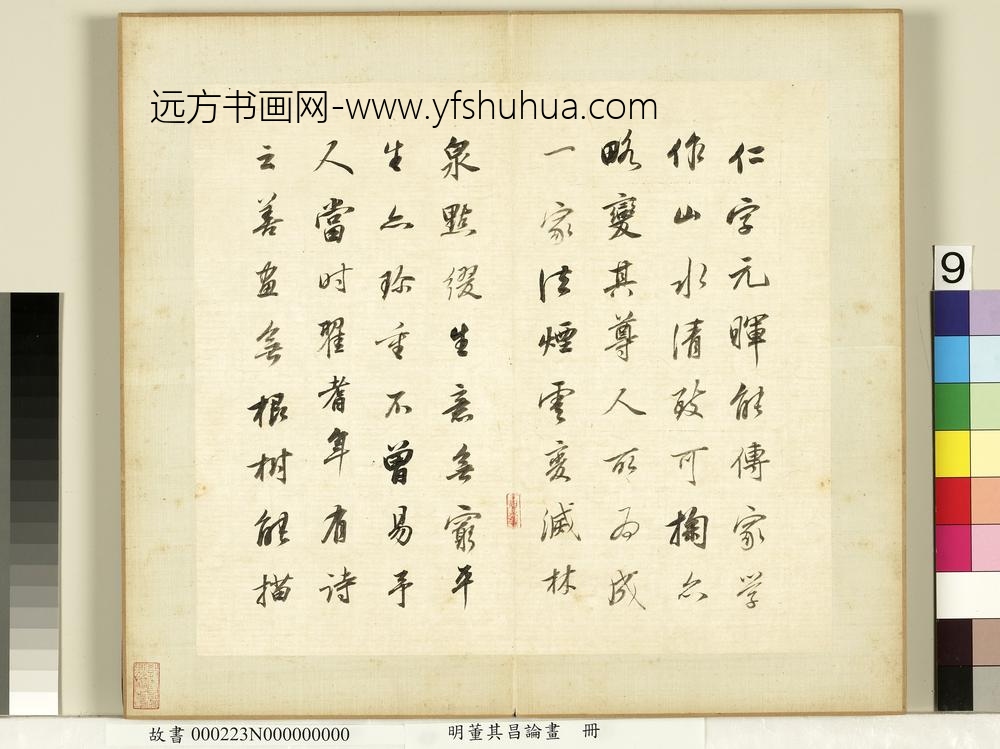 远方书画网-www.yfshuhua.com
仁字元暉能傳家学
作山水清致可掬亦
略變其尊人所为成
一家法煙雲变滅林
泉點缀生意無窮平
生亦珍重不曾易予
人當时翟耆年有诗
云善画無根樹能描
9
故書 000223N000000000 明董其昌論畫 冊